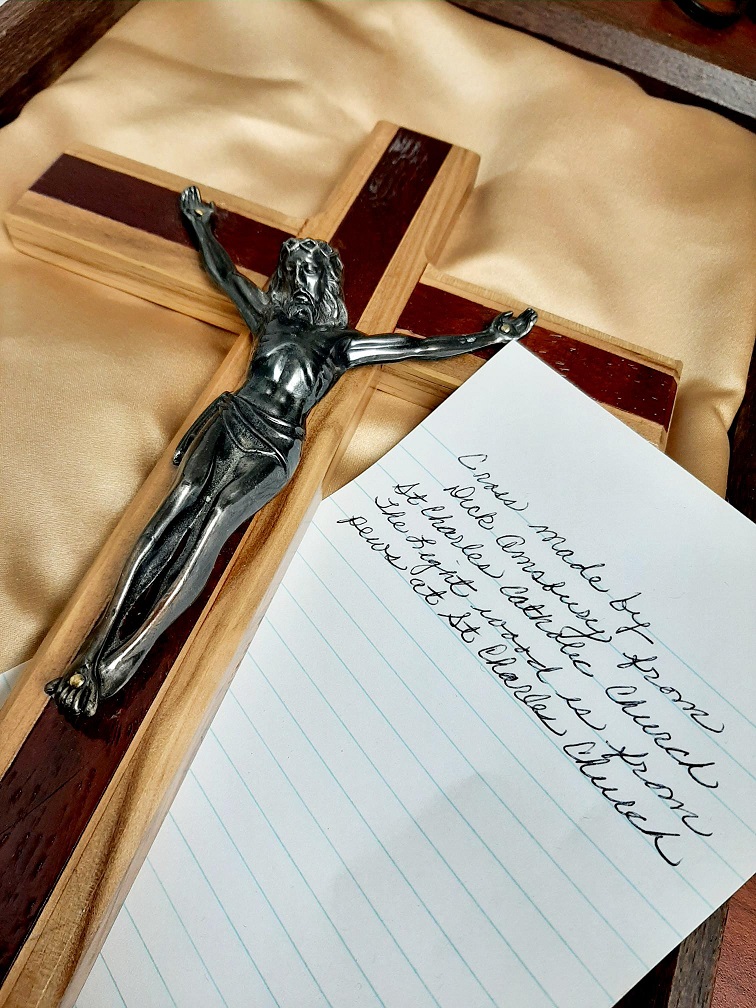 Cross made by
Dick Amsbury from
St Charles Catholic Church
The Light wood is from
pews at St Charles Church